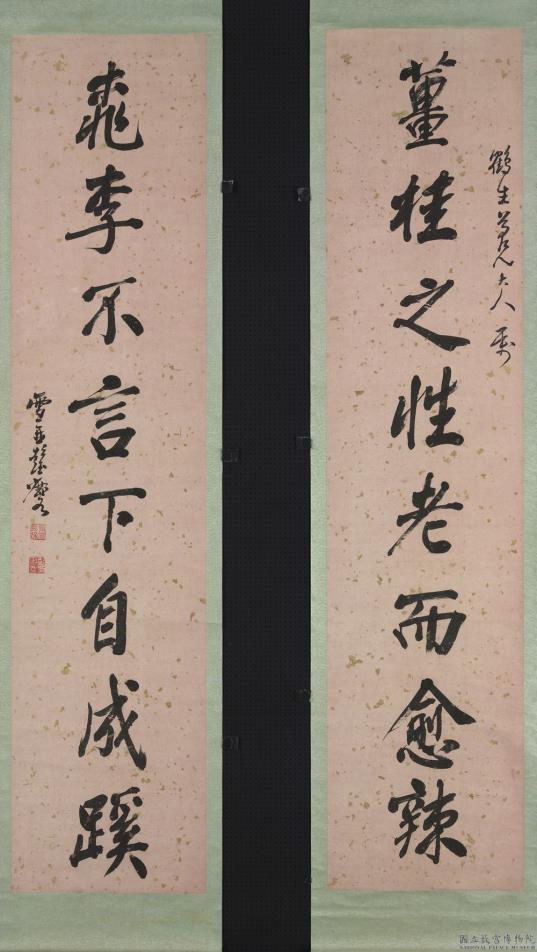 鶴生尊兄大人屬
薑桂之性老而愈辣
桃李不言下自成蹊
雪琴彭玉麐
國立故宮博物院
NATIONAL PALACE MUSEUM